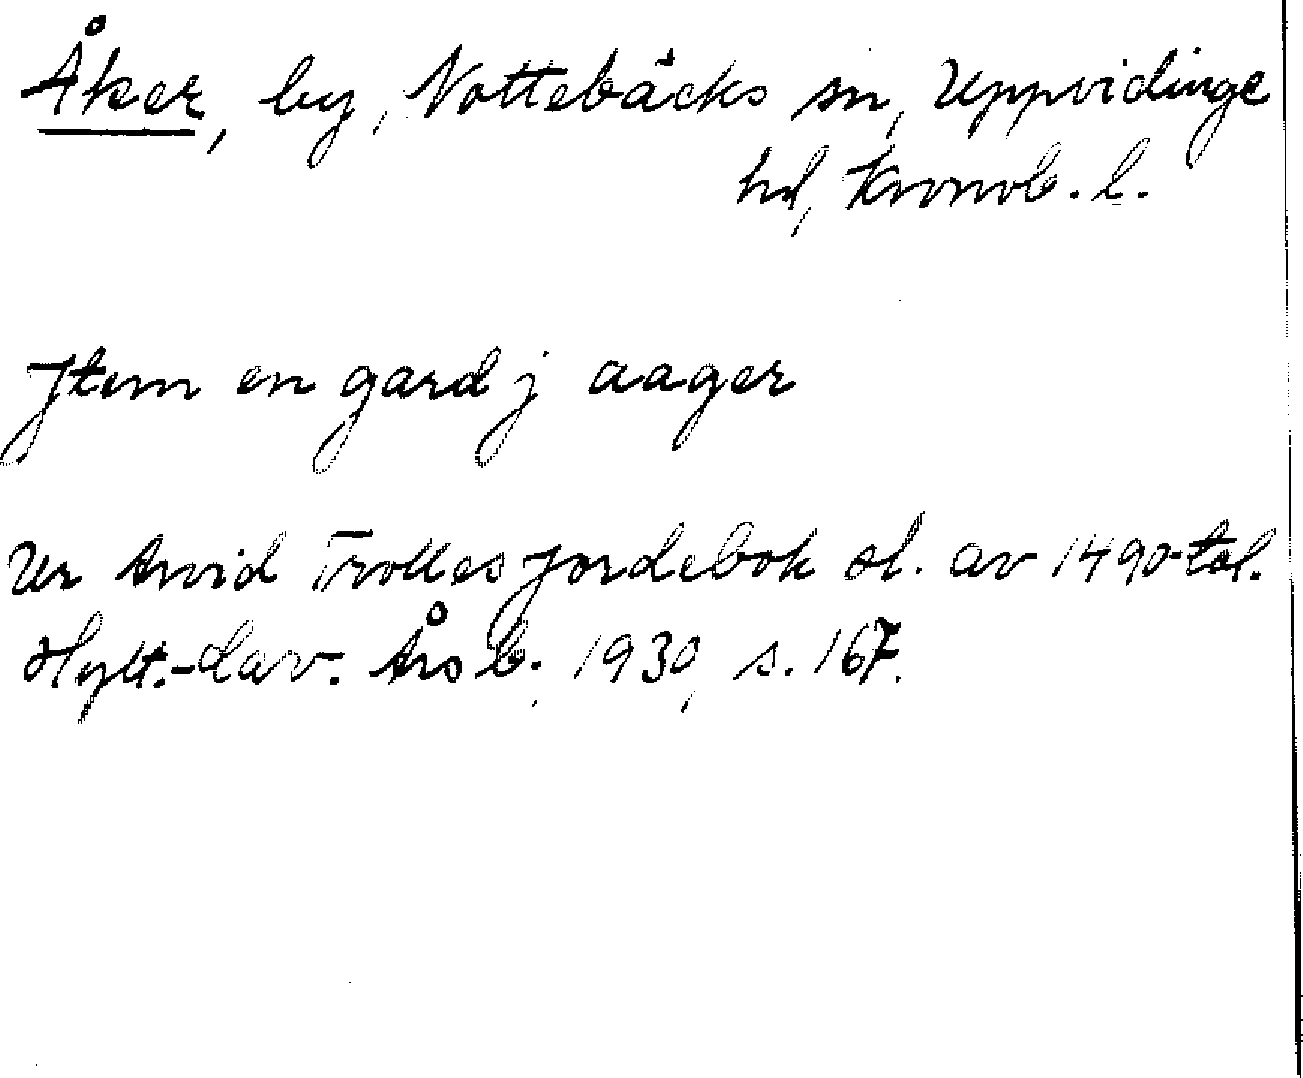 Åker, by, Nottebäcks sn, Uppvidinge
hd, Kronob. l.
Jtem en gard j aager
Ur Arvid Trolles jordebok sl. av 1490-tal.
Hylt.-Cav. Årsb. 1930, s. 167.